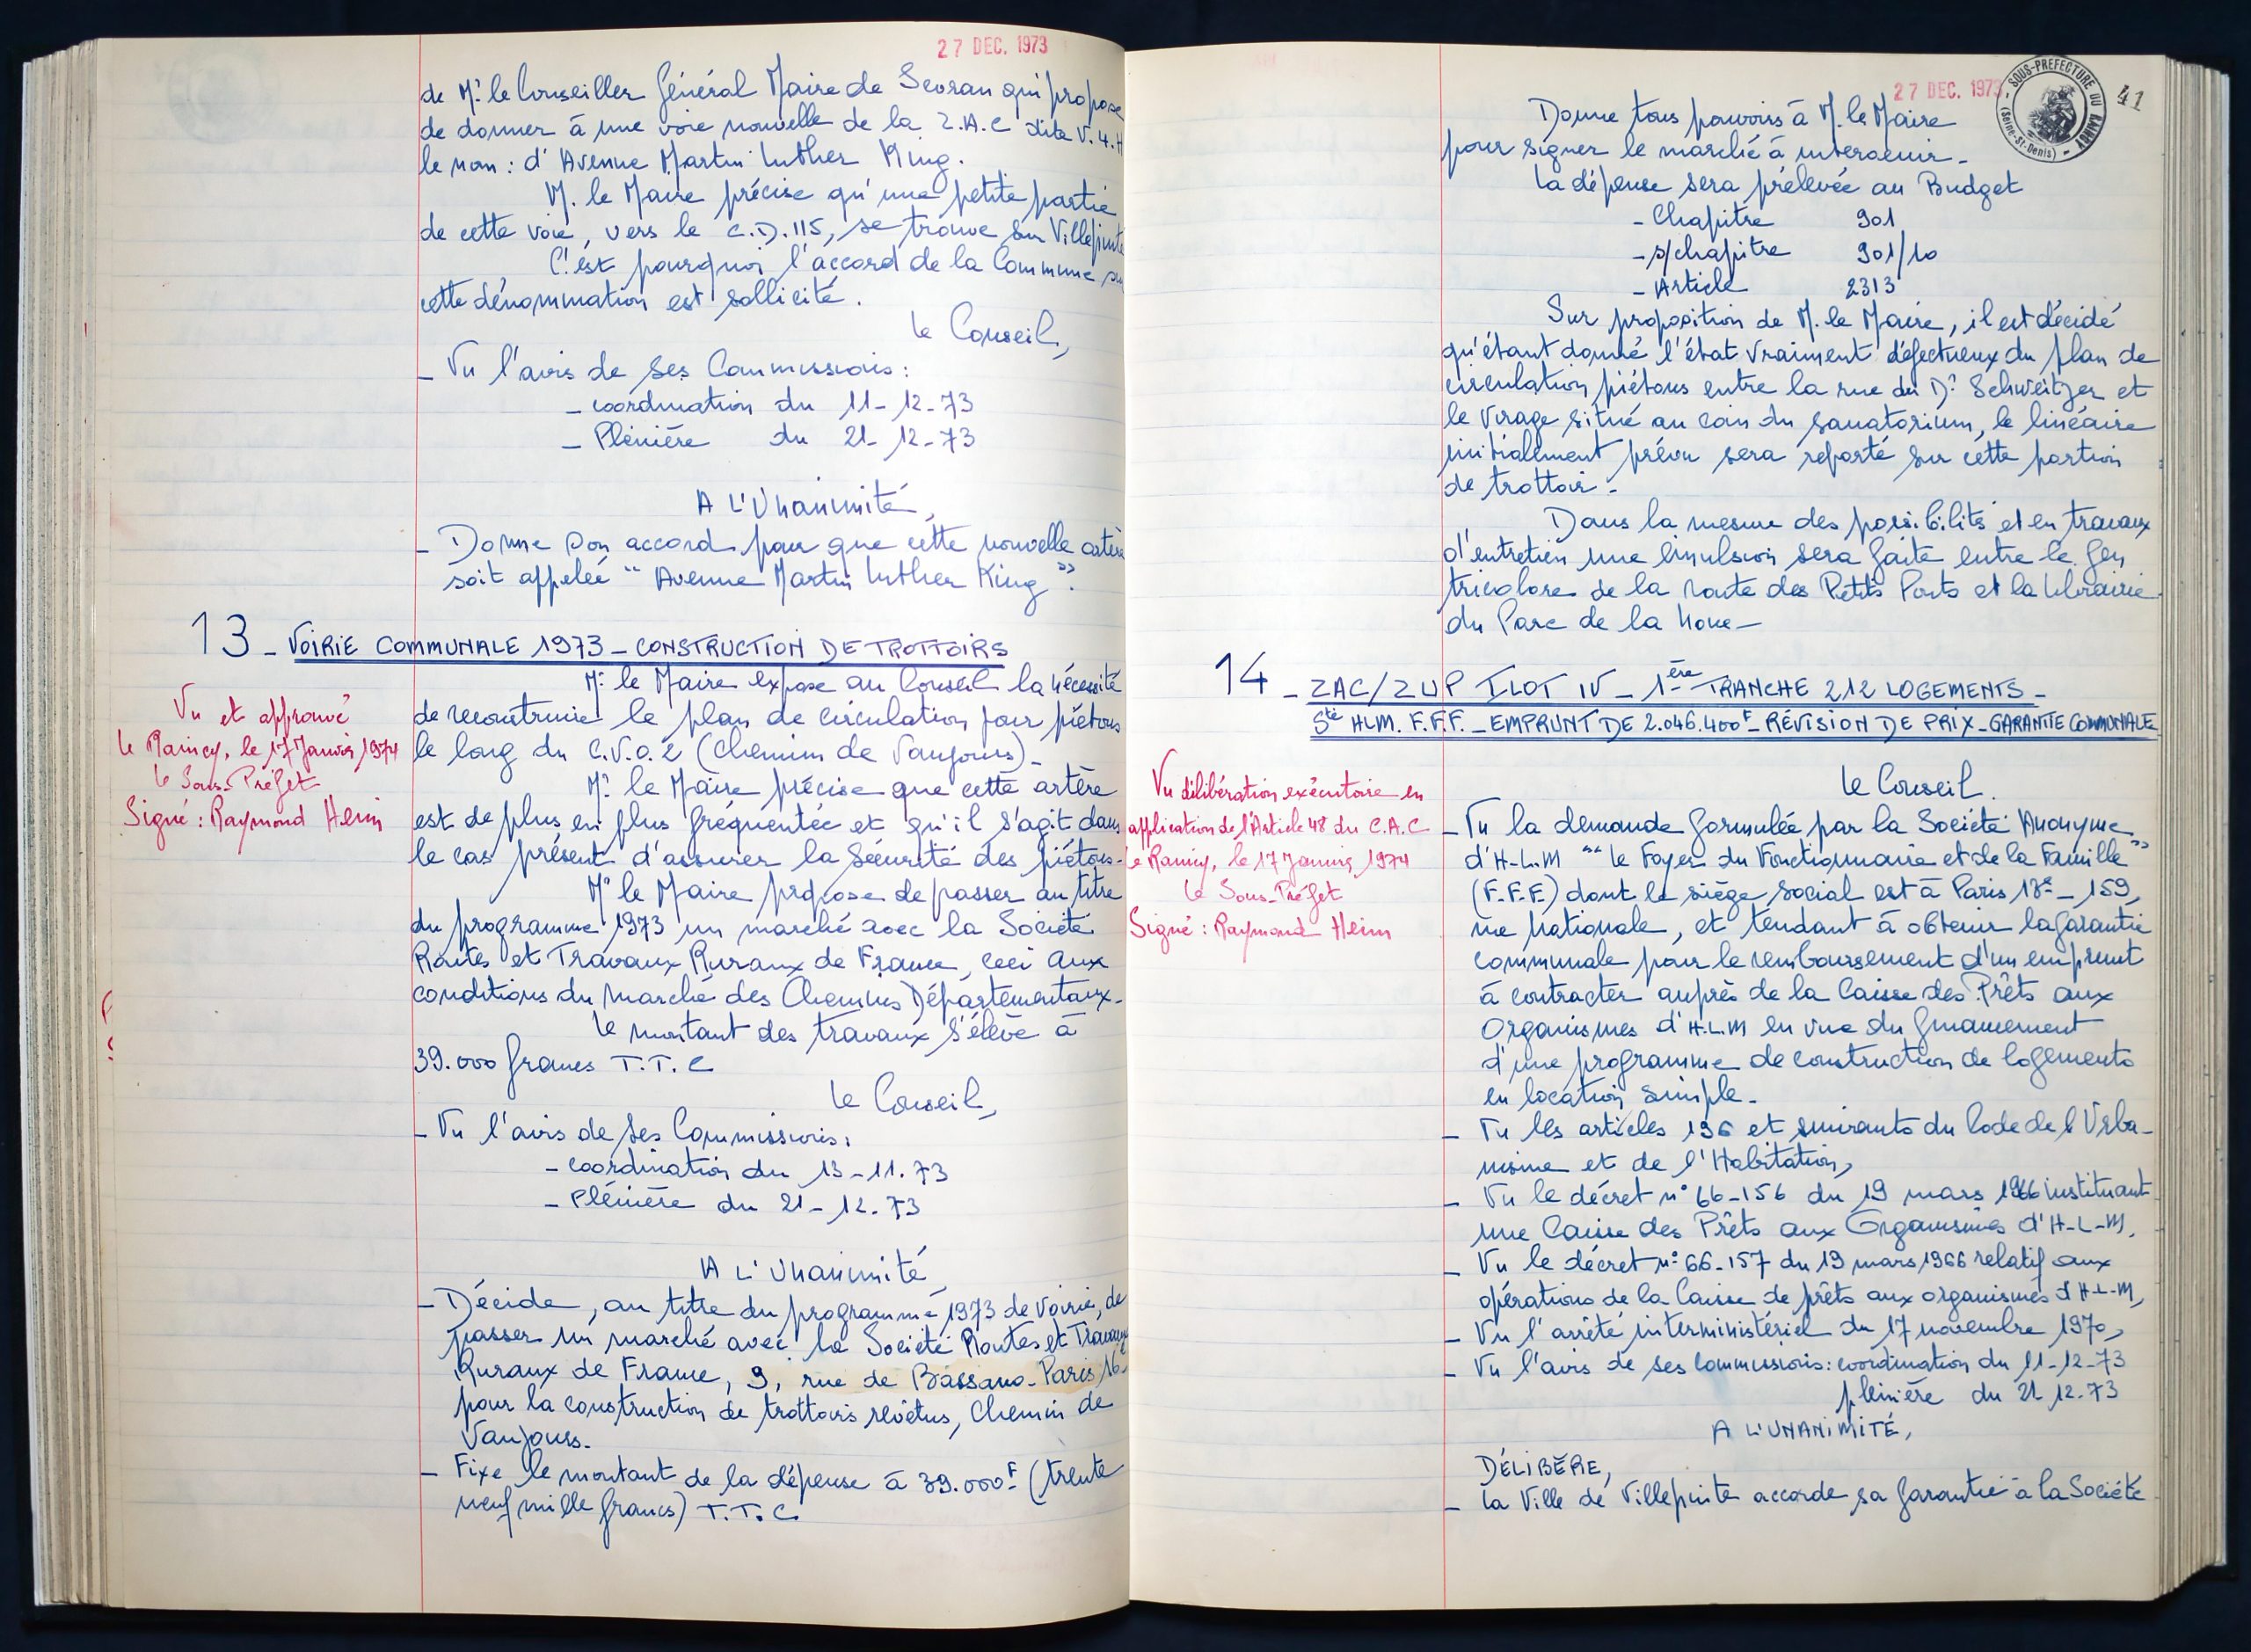 27 DEC. 1973
de Mr le Conseiller Général Maire de Sevran qui propose
de donner à une voie nouvelle de la Z.A.C dite V.4.H
le nom : d'Avenue Martin Luther King.
M. le Maire précise qu'une petite partie
de cette voie, vers le C.D.115, se trouve sur Villepinte
C'est pourquoi l'accord de la Commune sur
cette dénommination est sollicité.
Le Conseil,
- Vu l'avis de ses Commissions :
- coordination du 11-12-73
- Plénière du 21-12-73
A L'Unanimité,
- Donne son accord pour que cette nouvelle artère
soit appelée "Avenue Martin Luther King".
13 - VOIRIE COMMUNALE 1973 - CONSTRUCTION DE TROTTOIRS
Mr le Maire expose au Conseil la nécessité
de reconstruire le plan de circulation pour piétons
le long du C.V.O.2 (Chemin de Vaujours)-
Mr le Maire précise que cette artère
est de plus en plus fréquentée et qu'il s'agit dans
le cas présent d'assurer la sécurité des piétons-
Mr le Maire propose de passer au titre
du programme 1973 un marché avec la Société
Routes et Travaux Ruraux de France, ceci aux
conditions du marché des Chemins Départementaux-
Le montant des travaux s'élève à
39.000 francs T.T.C
Le Conseil,
- Vu l'avis de ses Commissions :
- coordination du 13-11.73
- Plénière du 21-12.73
A L'Unanimité
- Décide, au titre du programme 1973 de Voirie, de
passer un marché avec la Société Routes et Travaux
Ruraux de France, 9, rue de Bassano-Paris 16e
pour la construction de trottoirs revêtus, Chemin de
Vaujours-
- Fixe le montant de la dépense à 39.000F (trente
neuf mille francs) T.T.C.
Vu et approuvé
Le Raincy, le 17 Janvier 1974
Le Sous-Préfet
Signé : Raymond Heim
27 DEC. 1973
SOUS-PREFECTURE DU RAINCY
(Seine-St-Denis)
41
Donne tous pouvoirs à M. le Maire
pour signer le marché à intervenir-
La dépense sera prélevée au Budget
- Chapitre 901
- s/chapitre 901/10
- Article 2313
Sur proposition de M. le Maire, il est décidé
qu'étant donné l'état vraiment défectueux du plan de
circulation piétons entre la rue du Dr Schweitzer et
le virage situé au coin du sanatorium, le linéaire
initialement prévu sera reporté sur cette portion
de trottoir-
Dans la mesure des possibilités et en travaux
d'entretien une émulsion sera faite entre le feu
tricolore de la route des Petits Ponts et la librairie
du Parc de la Noue-
14 - ZAC/ZUP ILOT IV - 1ère TRANCHE 212 LOGEMENTS -
Sté HLM. F.F.F. - EMPRUNT DE 2.046.400F - RÉVISION DE PRIX - GARANTIE COMMUNALE
Vu délibération exécutoire en
application de l'Article 48 du C.A.C
Le Raincy, le 17 Janvier 1974
Le Sous-Préfet
Signé : Raymond Heim
Le Conseil.
- Vu la demande formulée par la Société Anonyme
d'H-L.M "Le Foyer du Fonctionnaire et de la Famille"
(F.F.F.) dont le siège social est à Paris 13e - 159,
rue Nationale, et tendant à obtenir la garantie
communale pour le remboursement d'un emprunt
à contracter auprès de la Caisse des Prêts aux
Organismes d'H.L.M en vue du financement
d'une programme de construction de logements
en location simple-
- Vu les articles 196 et suivants du Code de l'Urba-
nisme et de l'Habitation,
- Vu le décret n° 66-156 du 19 mars 1966 instituant
une Caisse des Prêts aux Organismes d'H-L-M,
- Vu le décret n° 66-157 du 19 mars 1966 relatif aux
opérations de la Caisse de prêts aux organismes d'H-L-M,
- Vu l'arrêté interministériel du 17 novembre 1970,
- Vu l'avis de ses commissions : coordination du 11-12-73
plénière du 21-12-73
A L'UNANIMITÉ,
DÉLIBÈRE,
- La Ville de Villepinte accorde sa garantie à la Société